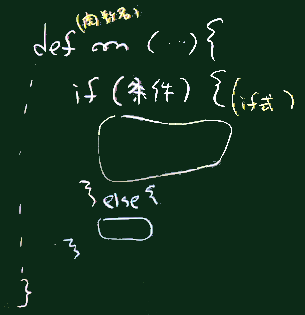 (関数名)
def m (...) {
if (条件) { (if式)
} else {
}
}